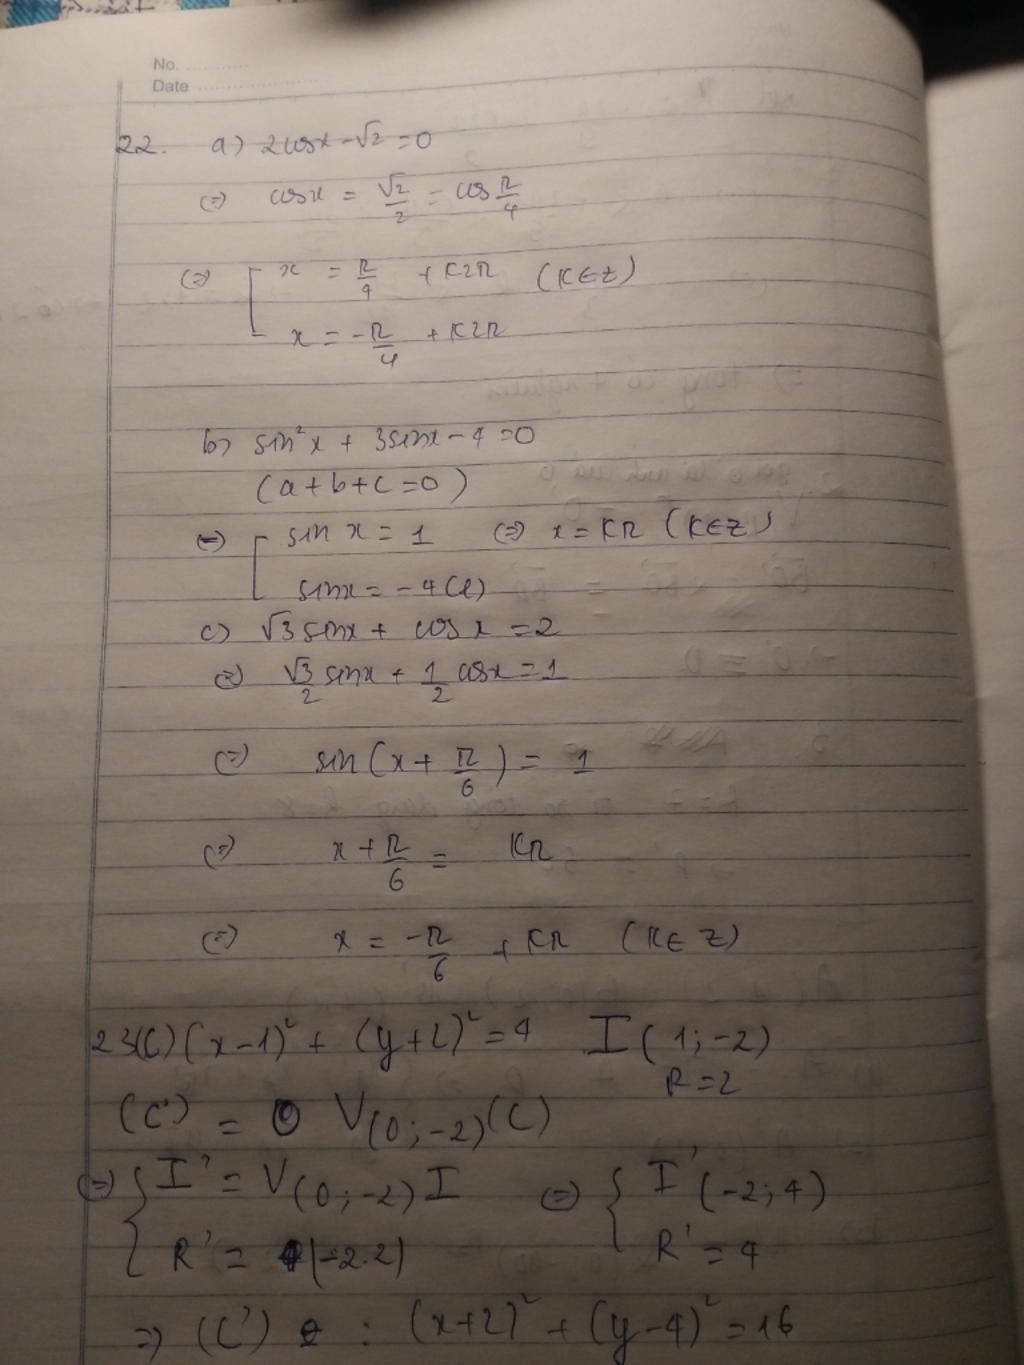 No. ............
Date ........................
22. a) 2cosx - √2 = 0
(=) cosx = √2/2 = cos π/4
(=) [ x = π/4 + k2π (k∈Z)
x = -π/4 + k2π
b) sin²x + 3sinx - 4 = 0
(a+b+c=0)
(=) [ sin x = 1 (=) x = kπ (k∈Z)
sinx = -4 (l)
c) √3 sinx + cos x = 2
(=) √3/2 sinx + 1/2 cosx = 1
(=) sin(x + π/6) = 1
(=) x + π/6 = kπ
(=) x = -π/6 + kπ (k∈Z)
23(C) (x-1)² + (y+2)² = 4 I(1;-2)
R=2
(C') = V(0;-2)(C)
(=) { I' = V(0;-2) I (=) { I'(-2;4)
R' = |-2.2| R' = 4
=> (C') : (x+2)² + (y-4)² = 16